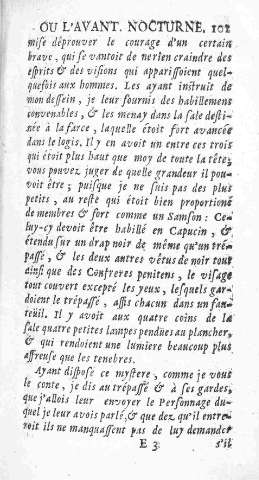 OU L'AVANT. NOCTURNE. 101
mise d'éprouver le courage d'un certain
brave, qui se vantoit de ne rien craindre des
esprits & des visions qui apparissoient quel-
quefois aux hommes. Les ayant instruit de
mon dessein, je leur fournis des habillemens
convenables, & les menay dans la sale desti-
née à la farce, laquelle étoit fort avancée
dans le logis. Il y en avoit un entre ces trois
qui étoit plus haut que moy de toute la tête,
vous pouvez juger de quelle grandeur il pou-
voit être; puisque je ne suis pas des plus
petits, au reste qui étoit bien proportioné
de membres & fort comme un Samson: Ce-
luy-cy devoit être habillé en Capucin, &
étendu sur un drap noir de même qu'un tré-
passé, & les deux autres vétus de noir tout
ainsi que des Confreres penitens, le visage
tout couvert excepté les yeux, lesquels gar-
doient le trépassé, assis chacun dans un fau-
teüil. Il y avoit aux quatre coins de la
sale quatre petites lampes penduës au plancher,
& qui rendoient une lumiere beaucoup plus
affreuse que les tenebres.
Ayant disposé ce mystere, comme je vous
le conte, je dis au trépassé & à ses gardes,
que j'allois leur envoyer le Personnage du-
quel je leur avois parlé, & que dez qu'il entre-
roit ils ne manquassent pas de luy demander
E 3 s'il